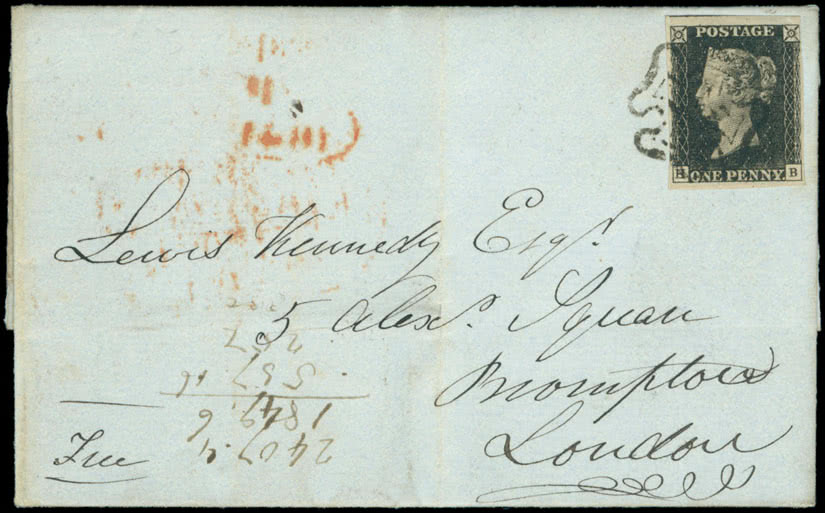 POSTAGE
H B
ONE PENNY
Lewis Kennedy Esqr.
5 Alexr. Square
Brompton
London
Free
2407.4
1849.6
557